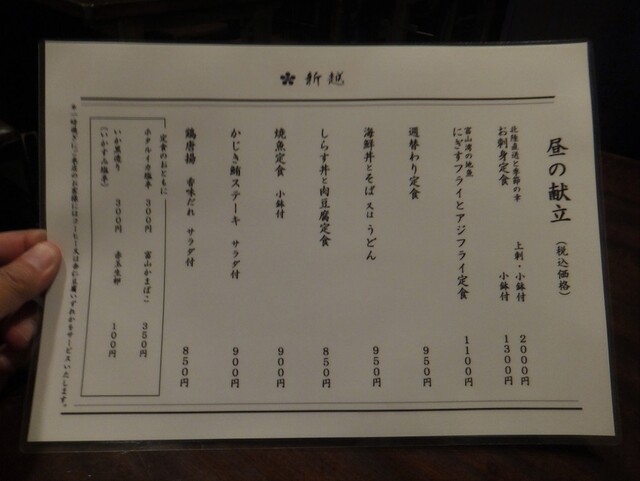 新越
昼の献立 (税込価格)
北陸直送と季節の幸
お刺身定食
上刺・小鉢付 2000円
小鉢付 1300円
富山湾の地魚
にぎすフライとアジフライ定食 1100円
週替わり定食 950円
海鮮丼とそば 又は うどん 950円
しらす丼と肉豆腐定食 850円
焼魚定食 小鉢付 900円
かじき鮪ステーキ サラダ付 900円
鶏唐揚 香味だれ サラダ付 850円
定食のおともに
ホタルイカ塩辛 300円 富山かまぼこ 350円
いか黒造り 300円 赤玉生卵 100円
(いかすみ塩辛)